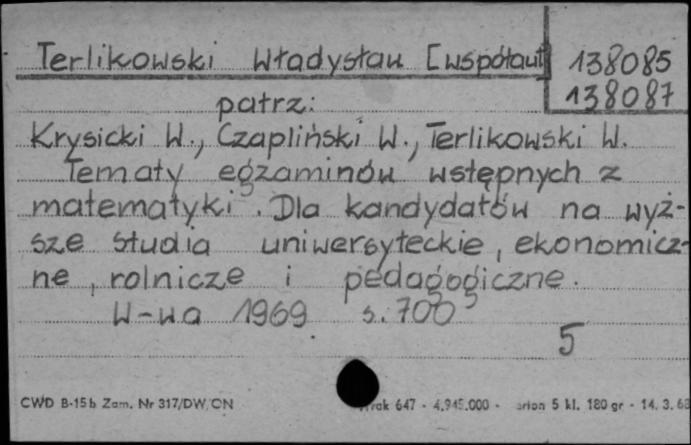 Terlikowski Władysław [współaut] 138085
138087
patrz:
Krysicki W., Czapliński W., Terlikowski W.
Tematy egzaminów wstępnych z
matematyki. Dla kandydatów na wyż-
sze studia uniwersyteckie, ekonomicz-
ne, rolnicze i pedagogiczne.
W-wa 1969 s. 700
5
CWD B-15b Zam. Nr 317/DW/ON 647 - 4.945.000 - 5 kl. 180 gr - 14. 3. 68